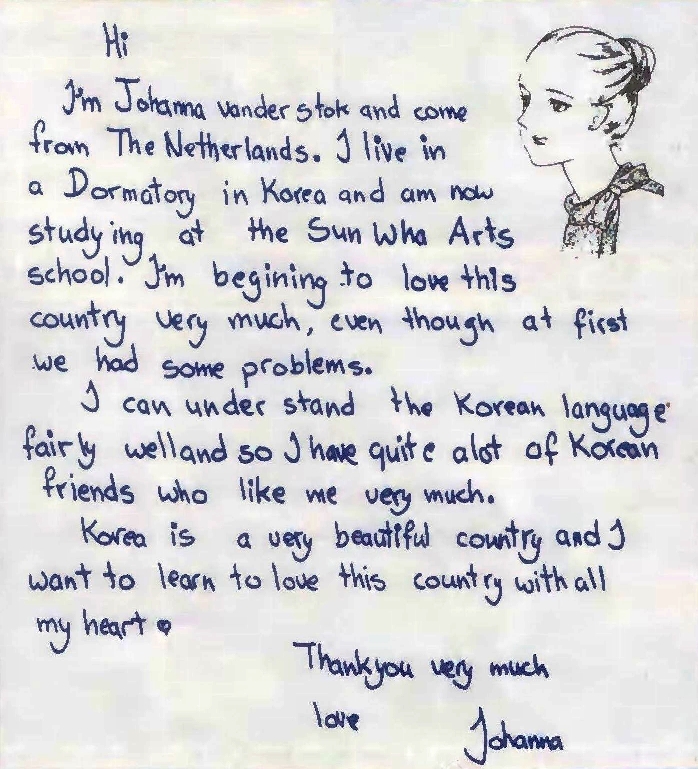 Hi
I'm Johanna vander stok and come
from The Netherlands. I live in
a Dormatory in Korea and am now
studying at the Sun Wha Arts
school. I'm begining to love this
country very much, even though at first
we had some problems.
I can under stand the Korean language
fairly welland so I have quite alot of Korean
friends who like me very much.
Korea is a very beautiful country and I
want to learn to love this country with all
my heart ♥
Thankyou very much
love Johanna